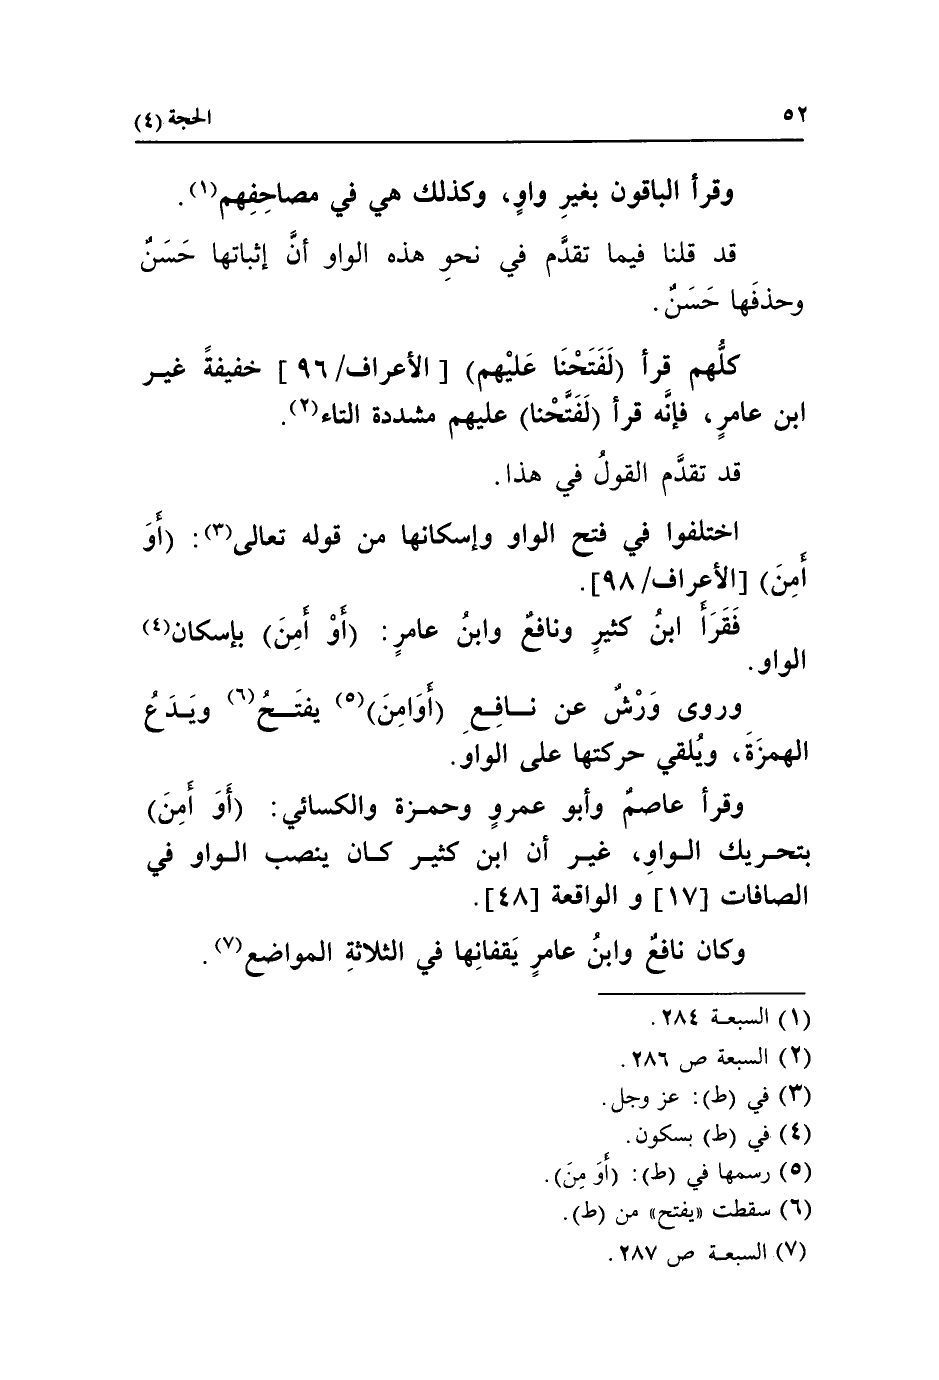 ٥٢ الحجة (٤)
وقرأ الباقون بغيرِ واوٍ، وكذلك هي في مصاحِفِهم(١).
قد قلنا فيما تقدَّم في نحوِ هذه الواو أنَّ إثباتها حَسَنٌ
وحذفَها حَسَنٌ.
كلُّهم قرأ (لَفَتَحْنَا عَلَيْهم) [الأعراف/٩٦] خفيفةً غير
ابن عامرٍ، فإنَّه قرأ (لَفَتَّحْنا) عليهم مشددة التاء(٢).
قد تقدَّم القولُ في هذا.
اختلفوا في فتح الواو وإسكانها من قوله تعالى(٣): (أَوَ
أَمِنَ) [الأعراف/٩٨].
فَقَرَأَ ابنُ كثيرٍ ونافعٌ وابنُ عامرٍ: (أَوْ أَمِنَ) بإسكان(٤)
الواو.
وروى وَرْشٌ عن نافِعٍ (أَوَامِنَ)(٥) يفتَحُ(٦) ويَدَعُ
الهمزَةَ، ويُلقي حركتها على الواو.
وقرأ عاصمٌ وأبو عمروٍ وحمزة والكسائي: (أَوَ أَمِنَ)
بتحريك الواوِ، غير أن ابن كثير كان ينصب الواو في
الصافات [١٧] و الواقعة [٤٨].
وكان نافعٌ وابنُ عامرٍ يَقفانِها في الثلاثةِ المواضع(٧).
(١) السبعة ٢٨٤.
(٢) السبعة ص ٢٨٦.
(٣) في (ط): عز وجل.
(٤) في (ط) بسكون.
(٥) رسمها في (ط): (أَوَ مِنَ).
(٦) سقطت «يفتح» من (ط).
(٧) السبعة ص ٢٨٧.